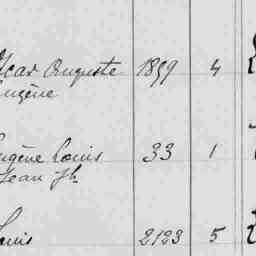 Oscar Auguste 1899 4
Eugène
Eugène Louis 33 1
Jean Jh
Louis 2123 5